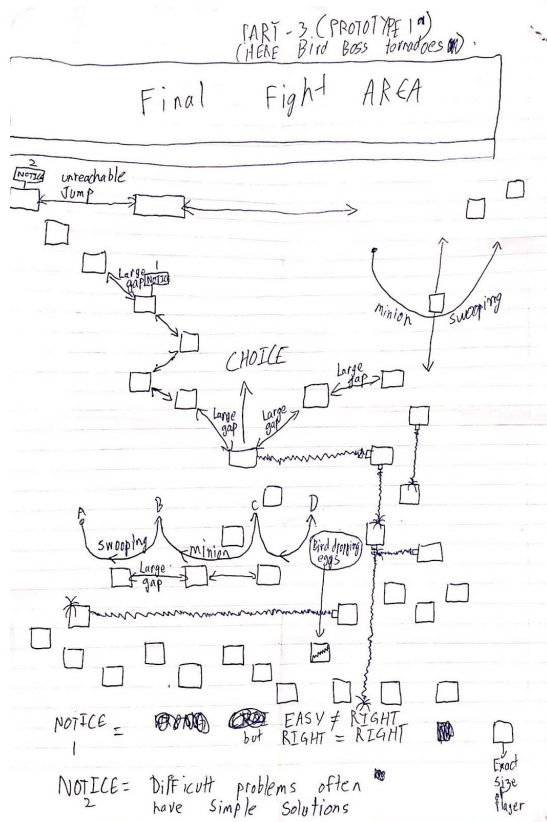 PART - 3 (PROTOTYPE 1)
(HERE Bird Boss tornadoes).
Final Fight AREA
2
NOTICE
unreachable
Jump
Large
gap
1
NOTICE
minion swooping
CHOICE
Large
gap
Large
gap
Large
gap
A B C D
swooping minion
Bird dropping
eggs
Large
gap
NOTICE 1 = EASY ≠ RIGHT
but RIGHT = RIGHT
NOTICE 2 = Difficult problems often
have simple solutions
Exact
size
of
Player